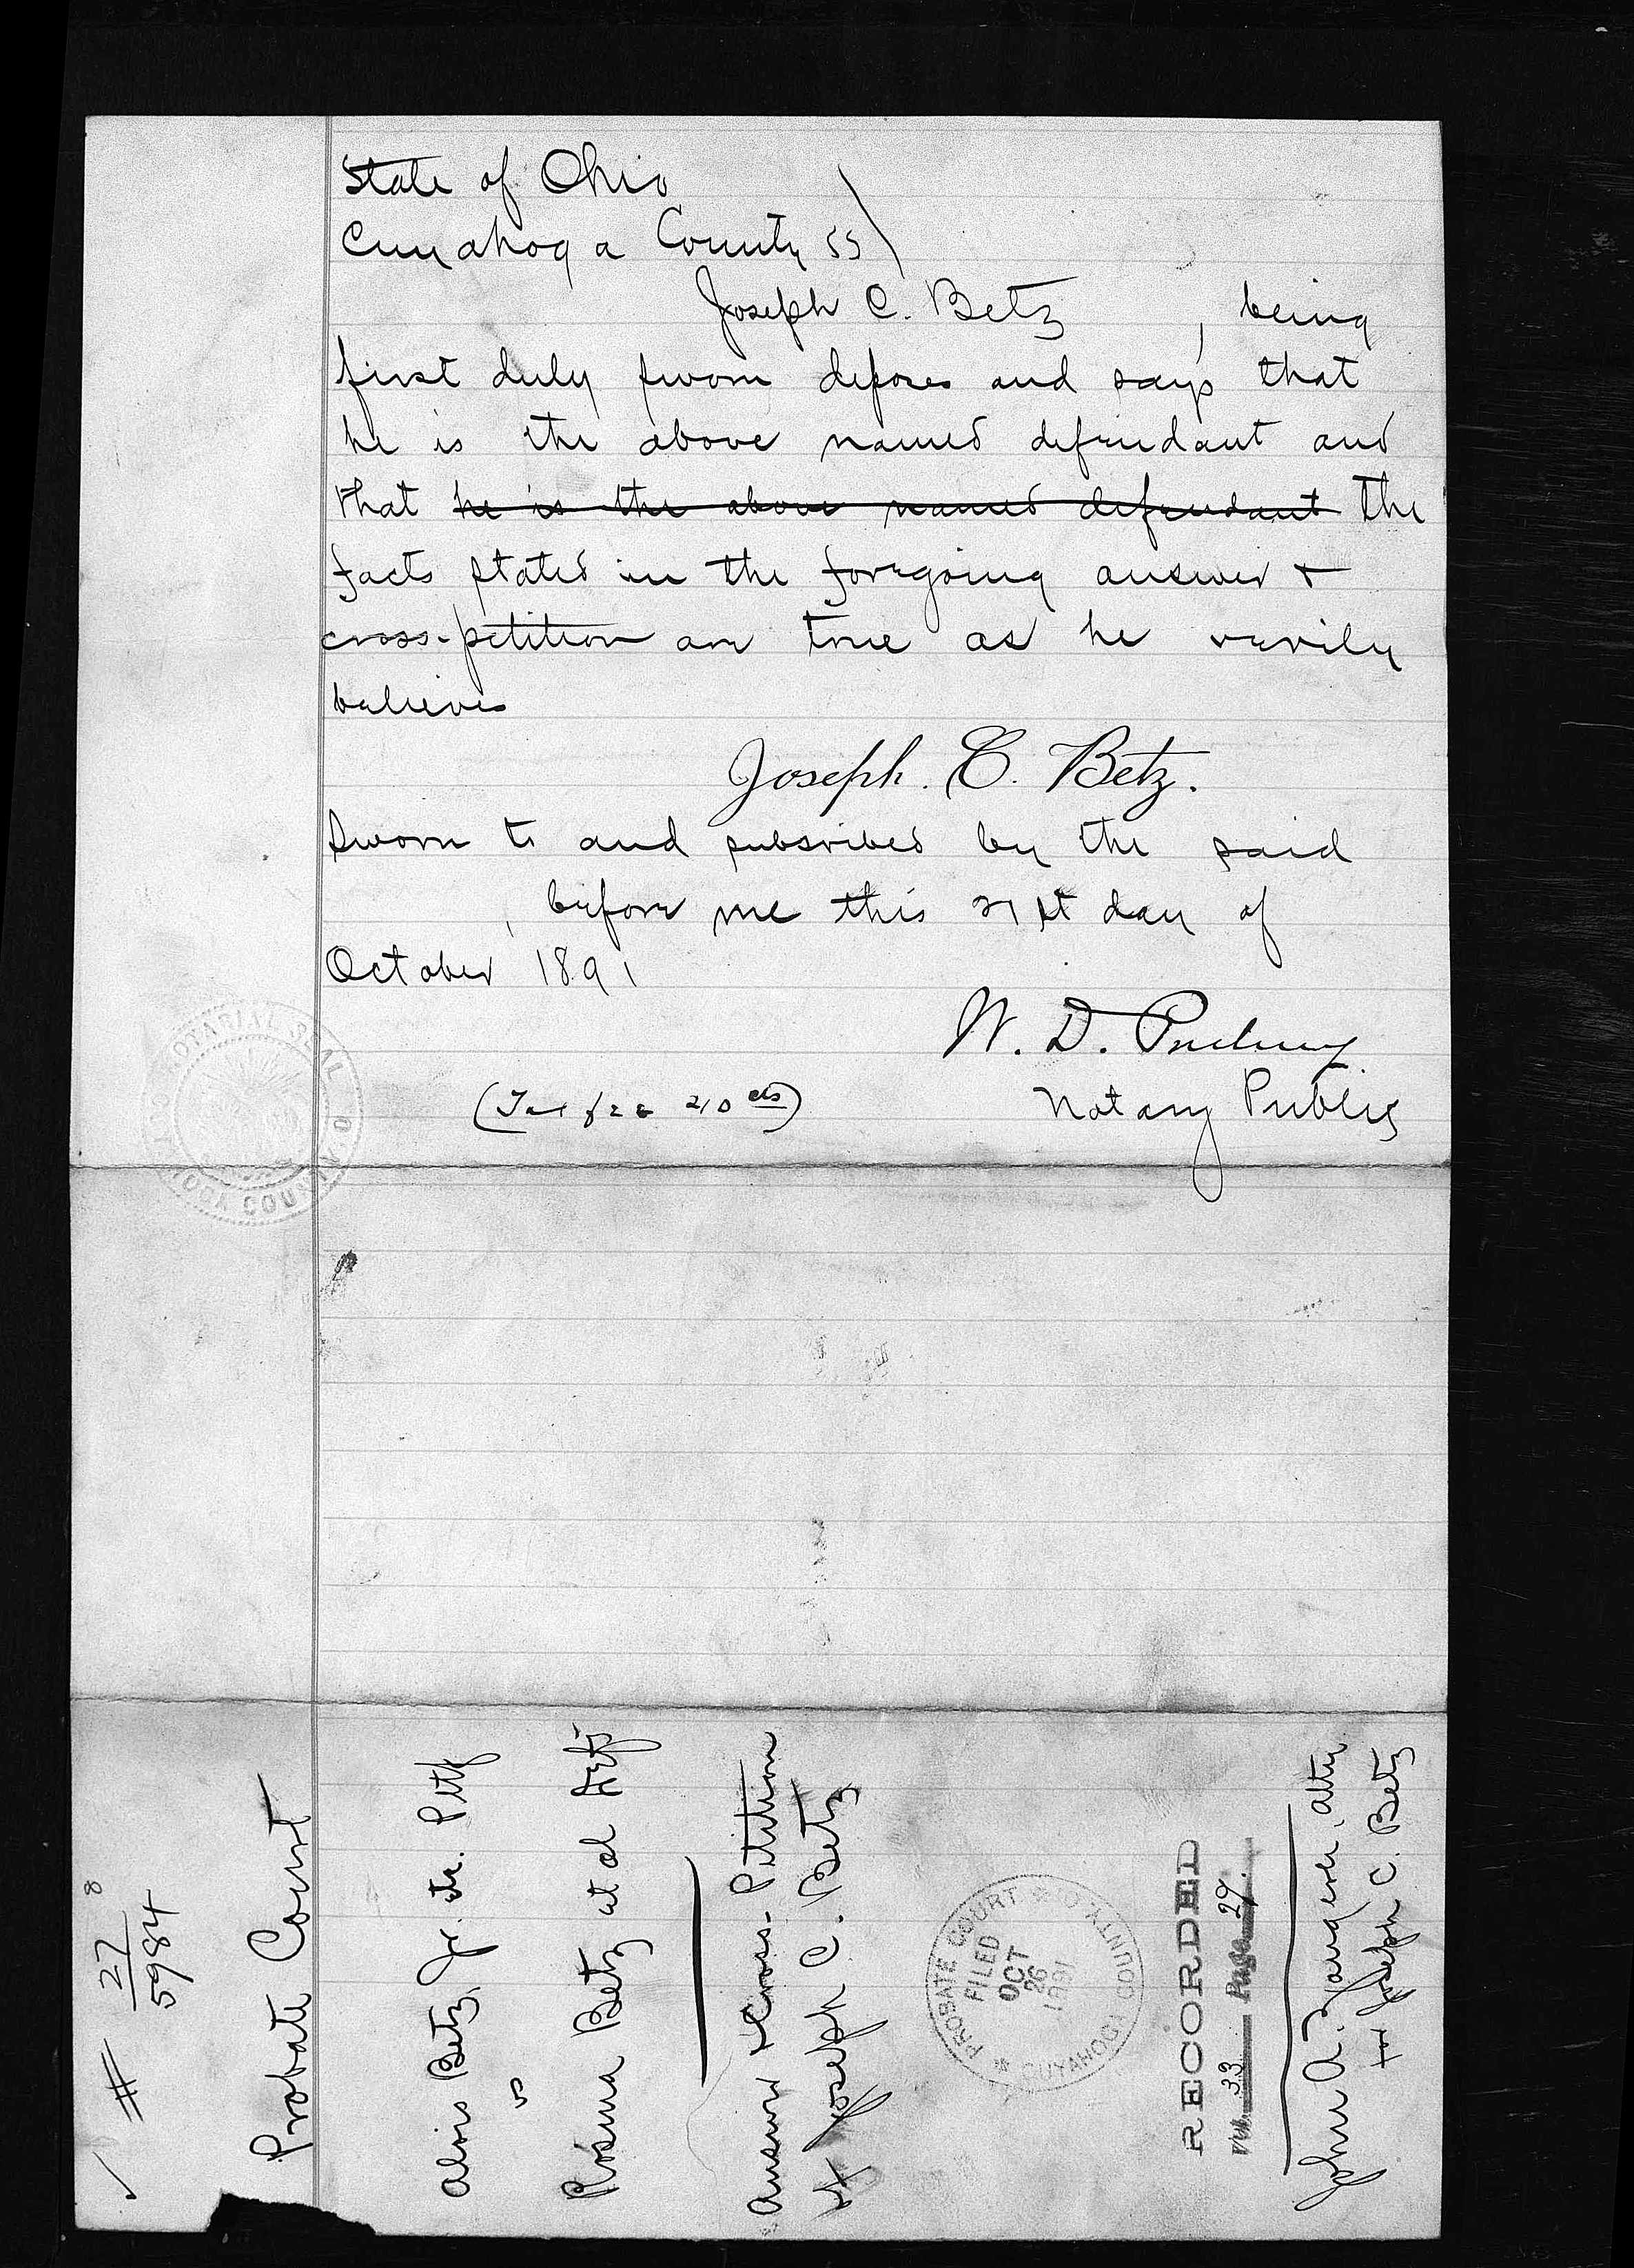 State of Ohio
Cuyahoga County SS
Joseph C. Betz, being
first duly sworn deposes and says that
he is the above named defendant and
that he is the above named defendant the
facts stated in the foregoing answer &
cross-petition are true as he verily
believes
Joseph. C. Betz.
Sworn to and subscribed by the said
, before me this 21st day of
October 1891
W. D.
Notary Public
( fee 40 cts)
NOTARIAL SEAL
COUNTY
# 27 8
5984
Probate Court
Alois Betz, Jr. Pltf
vs
Rosina Betz et al
Answer & Cross-Petition
of Joseph C. Betz
PROBATE COURT CUYAHOGA COUNTY, O.
FILED
OCT
26
1891
RECORDED
Vol. 33 Page 29.
John A. atty
for Joseph C. Betz